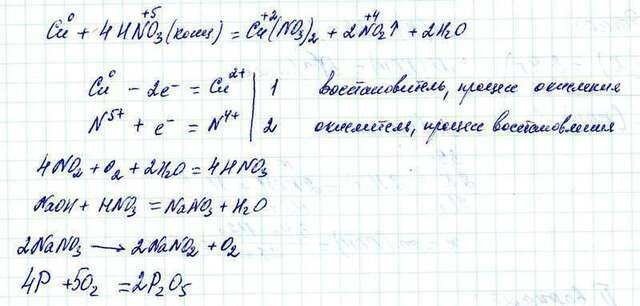 Cu⁰ + 4HN⁺⁵O₃(конц) = Cu⁺²(NO₃)₂ + 2N⁺⁴O₂↑ + 2H₂O
Cu⁰ - 2e⁻ = Cu²⁺ | 1 восстановитель, процесс окисления
N⁵⁺ + e⁻ = N⁴⁺ | 2 окислитель, процесс восстановления
4NO₂ + O₂ + 2H₂O = 4HNO₃
NaOH + HNO₃ = NaNO₃ + H₂O
2NaNO₃ → 2NaNO₂ + O₂
4P + 5O₂ = 2P₂O₅